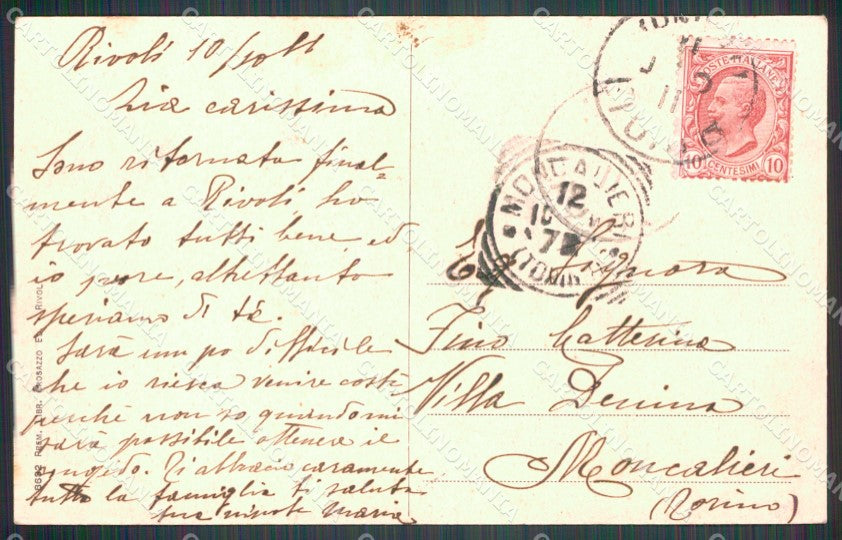 Rivoli 10/10 11
Zia carissima
Sono ritornata final=
mente a Rivoli ho
trovato tutti bene ed
io pure, altrettanto
speriamo di te.
Sarà un po difficile
che io riesca venire costi
perché non so quando mi
sarà possibile ottenere il
congedo. Ti abbraccio caramente
tutta la famiglia ti saluta
tua nipote Maria
Signora
Fino Catterina
Villa Denina
Moncalieri
(Torino)
MONCALIERI
12
10
(TORINO)
POSTE ITALIANE
10 CENTESIMI 10
RIVOLI
TORINO
11
8692 PREM. LIBR. BROSAZZO ED. RIVOLI
CARTOLINOMANIA